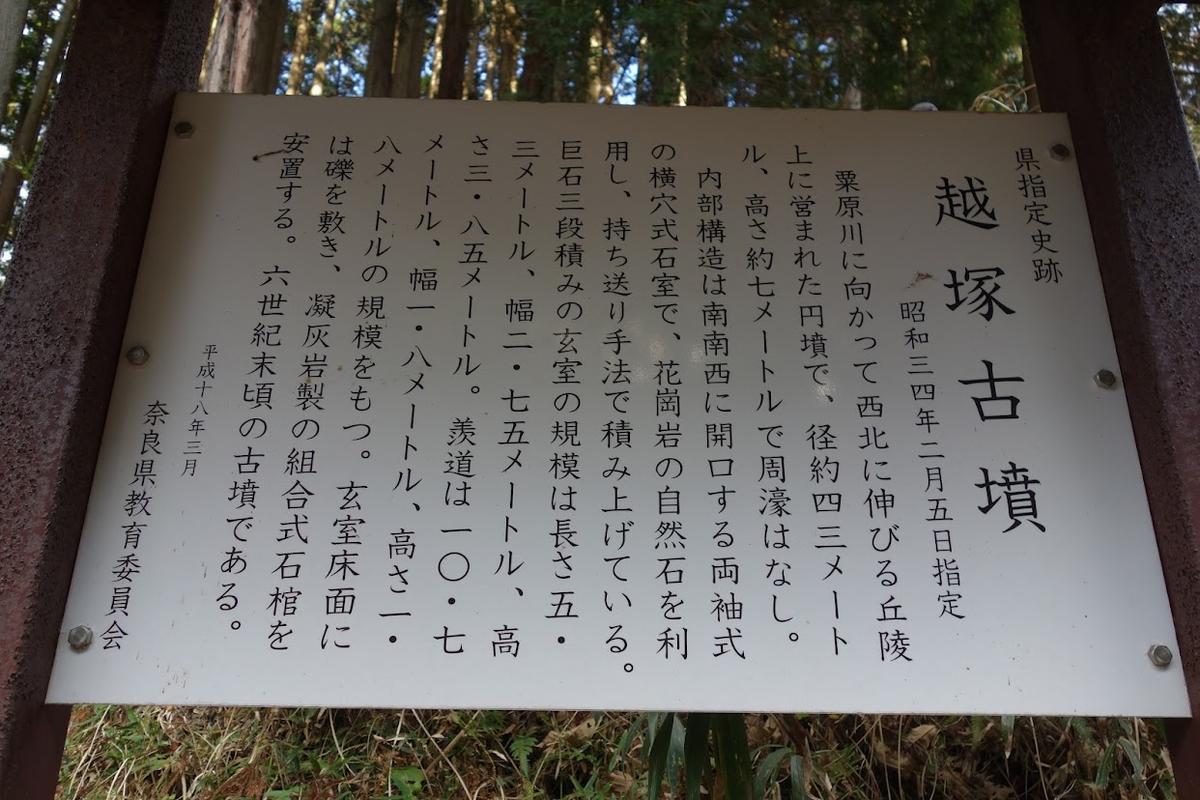 県指定史跡
越塚古墳
昭和三四年二月五日指定
粟原川に向かって西北に伸びる丘陵
上に営まれた円墳で、径約四三メート
ル、高さ約七メートルで周濠はなし。
内部構造は南南西に開口する両袖式
の横穴式石室で、花崗岩の自然石を利
用し、持ち送り手法で積み上げている。
巨石三段積みの玄室の規模は長さ五・
三メートル、幅二・七五メートル、高
さ三・八五メートル。羨道は一〇・七
メートル、幅一・八メートル、高さ一・
八メートルの規模をもつ。玄室床面に
は礫を敷き、凝灰岩製の組合式石棺を
安置する。六世紀末頃の古墳である。
平成十八年三月
奈良県教育委員会